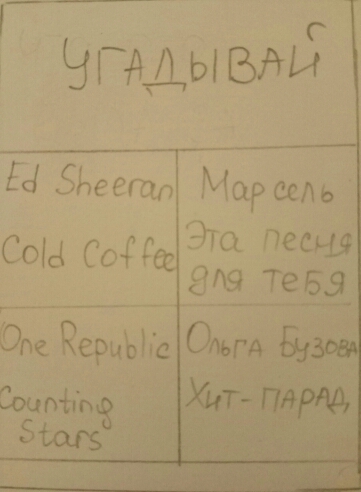 УГАДЫВАЙ
Ed Sheeran
Cold Coffee
Марсель
Эта песня
для тебя
One Republic
Counting
Stars
Ольга Бузова
Хит-ПАРАД